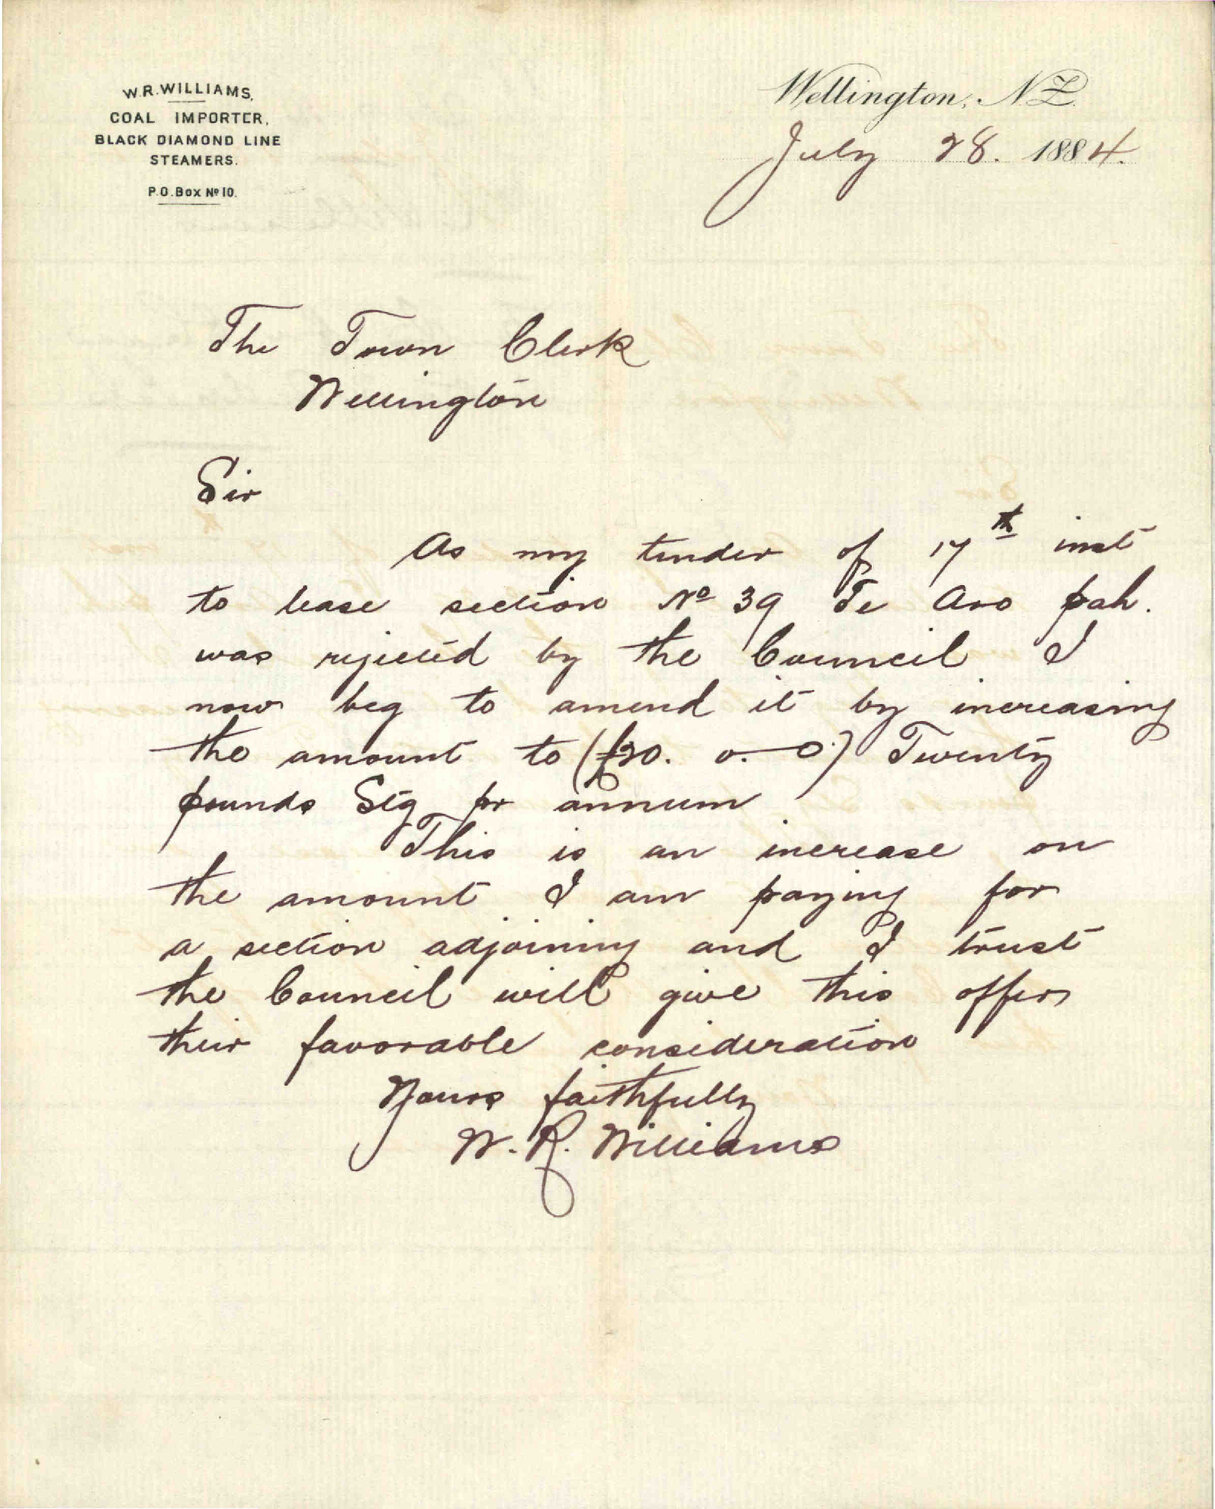 W.R. WILLIAMS,
COAL IMPORTER,
BLACK DIAMOND LINE
STEAMERS.
P.O. Box No 10.
Wellington, NZ.
July 28. 1884.
The Town Clerk
Wellington
Sir
As my tender of 17th inst
to lease section No 39 Te Aro pah.
was rejected by the Council I
now beg to amend it by increasing
the amount to (£20. 0. 0.) Twenty
pounds Stg pr annum
This is an increase on
the amount I am paying for
a section adjoining and I trust
the Council will give this offer
their favorable consideration
Yours faithfully
W. R. Williams